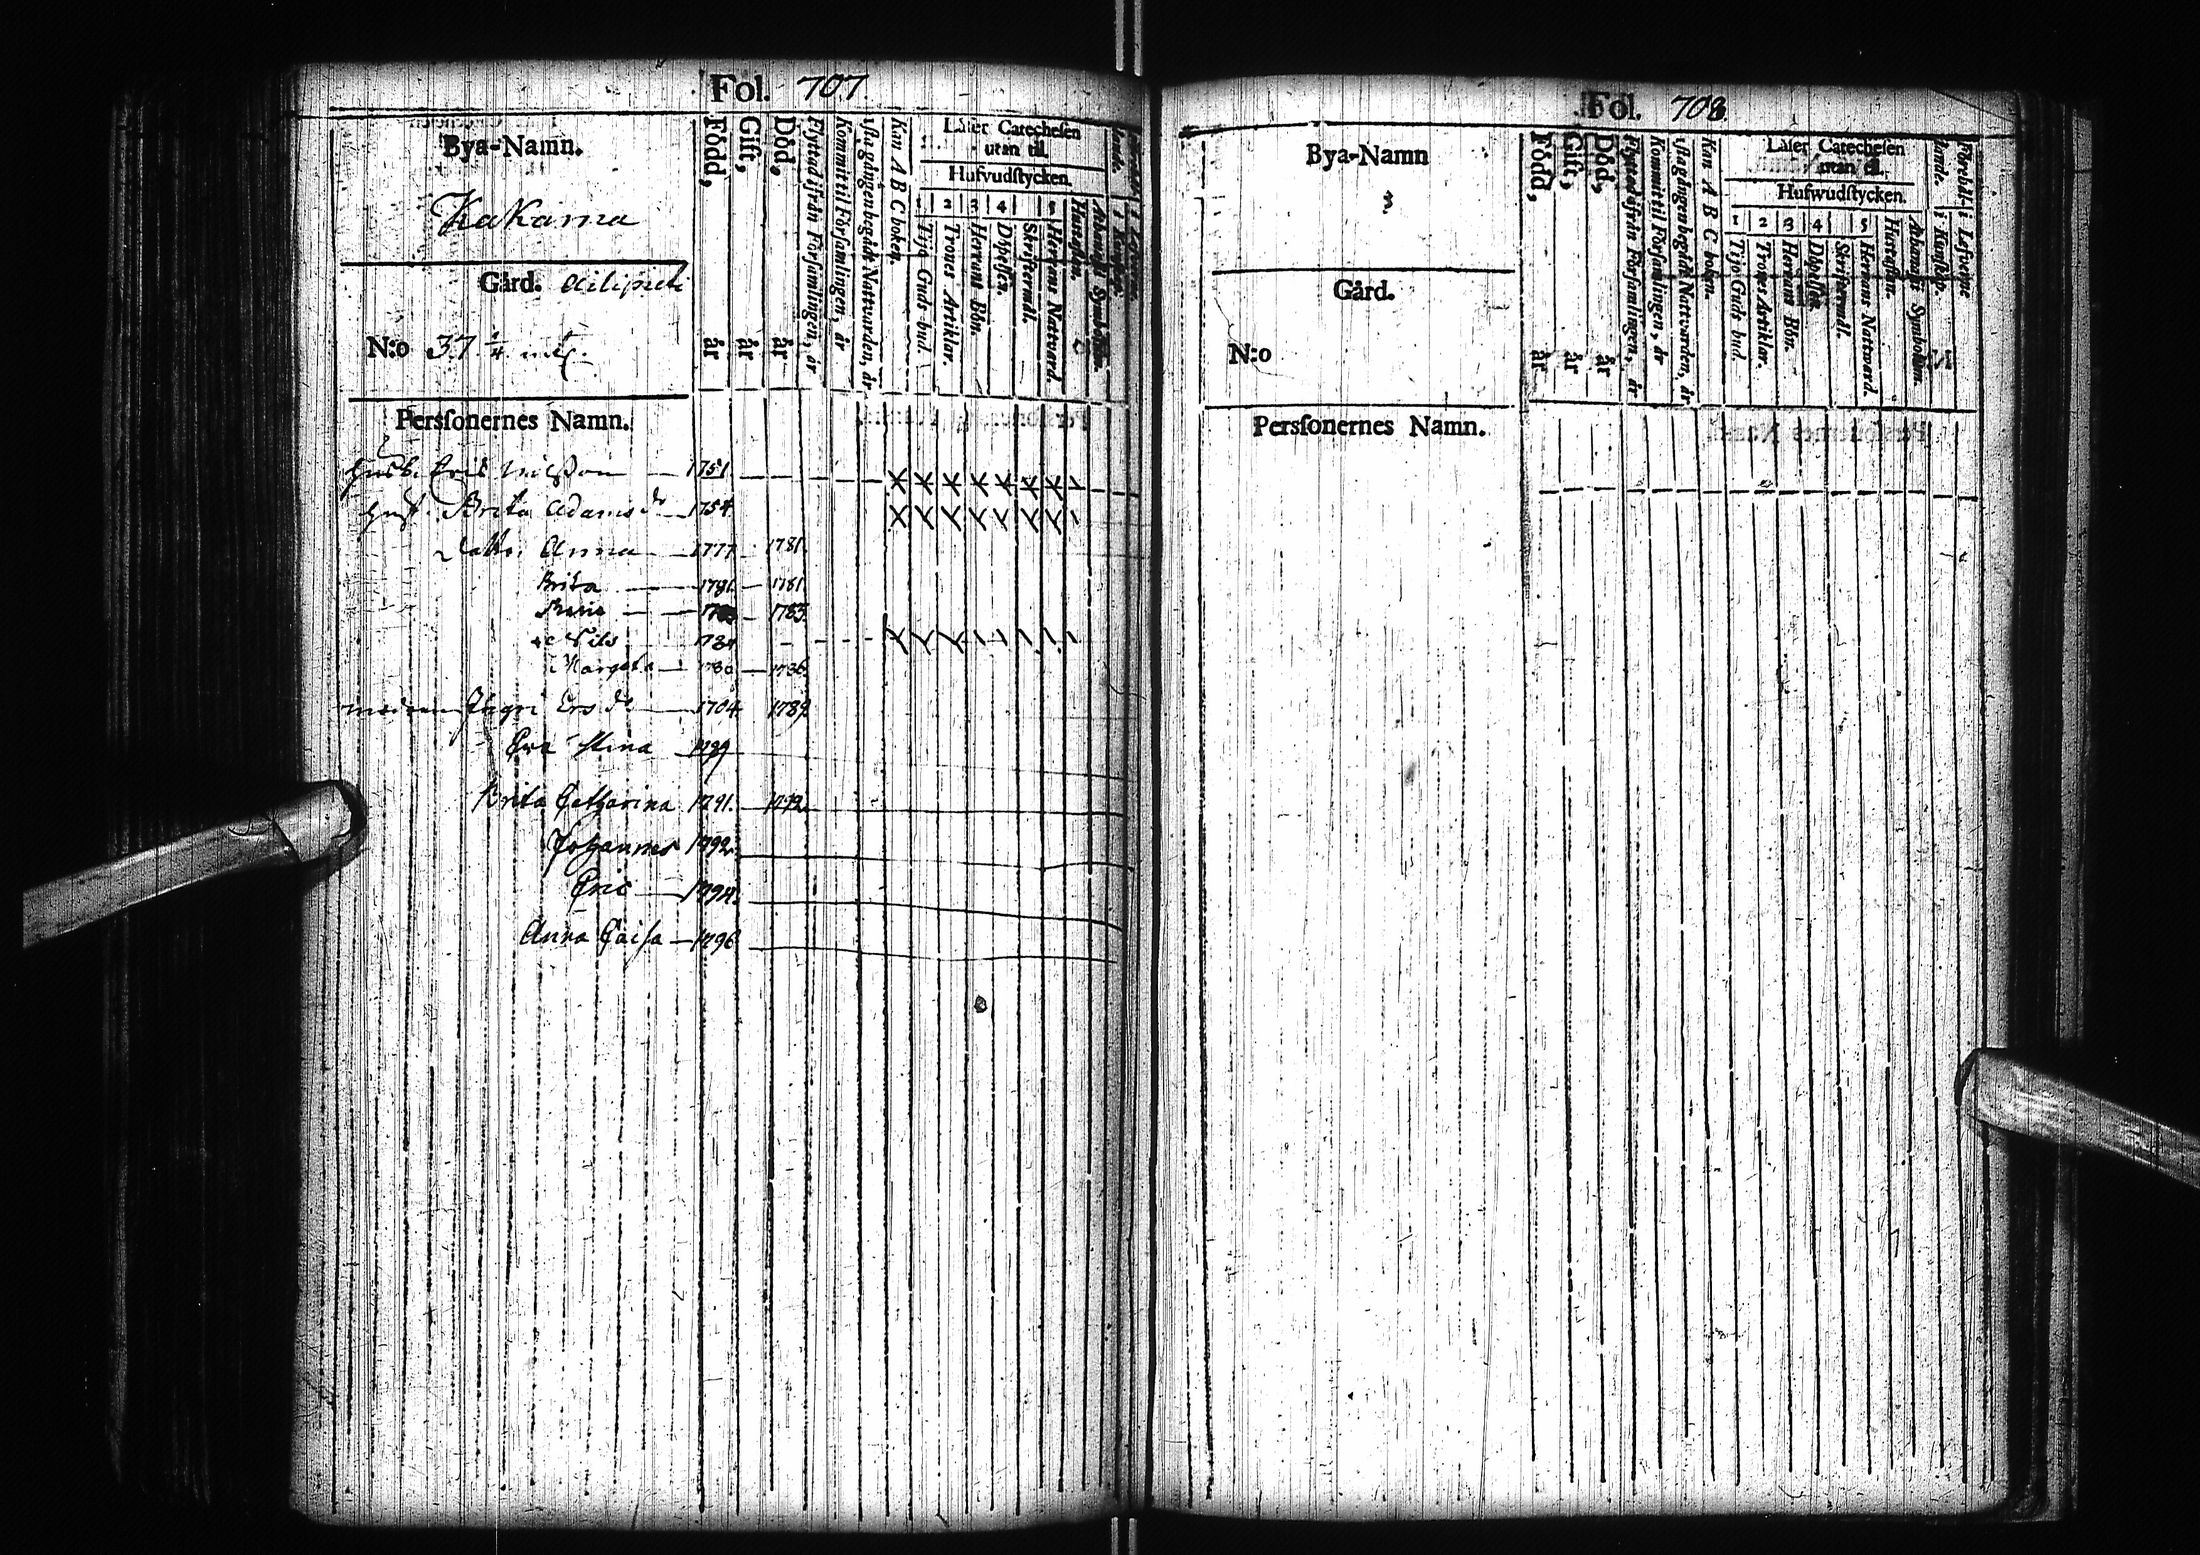 Fol. 707
Bya-Namn.
Kakama
Gård. Ailipieti
N:o 37. 1/4 mt.
Född, år
Gift, år
Död, år
Flyttad ifrån Församlingen, år
Kommit til Församlingen, år
1sta gången begådt Nattvarden, år
Kan A B C boken.
Läser Catechesen
utan til.
Hufvudstycken.
1 2 3 4 5
Tijo Guds bud.
Trones Artiklar.
Herrans Bön.
Döpelsen.
Skriftermål.
Herrans Natvard.
Hustaflan.
Athanasii Symbolum.
Persſonernes Namn.
Husb. Eric Nilsson 1751.
Hust. Brita Adams dr 1754.
Dottr. Anna 1777 1781.
Brita 1781. 1781
Maria 1783.
Nils 1784
Margeta 1780 1786.
modren Ingri Ers dr 1704 1789.
Eva Stina 1789
Brita Catharina 1791. 1792.
Johannes 1792.
Eric 1794.
Anna Caisa 1796
Fol. 708.
Bya-Namn
Gård.
N:o
Född, år
Gift, år
Död, år
Flyttad ifrån Församlingen, år
Kommit til Församlingen, år
1sta gången begådt Nattvarden, år
Kan A B C boken.
Läser Catechesen
utan til.
Hufwudstycken.
1 2 3 4 5
Tijo Guds bud
Trones Artiklar.
Herrans Bön.
Döpelsen.
Skriftermål.
Herrans Nattward.
Hustaflan.
Athanasii Symbolum.
Förehållande. i Kunskap.
i Lefverne
Persſonernes Namn.